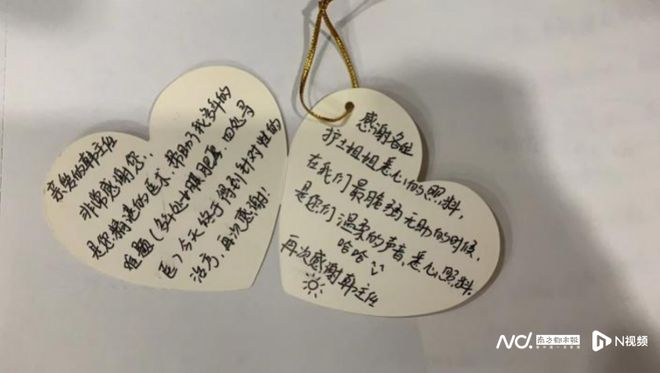 亲爱的韩主任
非常感谢您,
是您精湛的医术,帮助了我多年的
难题(到处去眼肥累,四处寻
医)今天终于得到针对性的
治疗,再次感谢!
感谢各位
护士姐姐悉心的照料,
在我们最脆弱无助的时候,
是您们温柔的声音、悉心照料.
哈哈
再次感谢韩主任
N视频
南方都市报